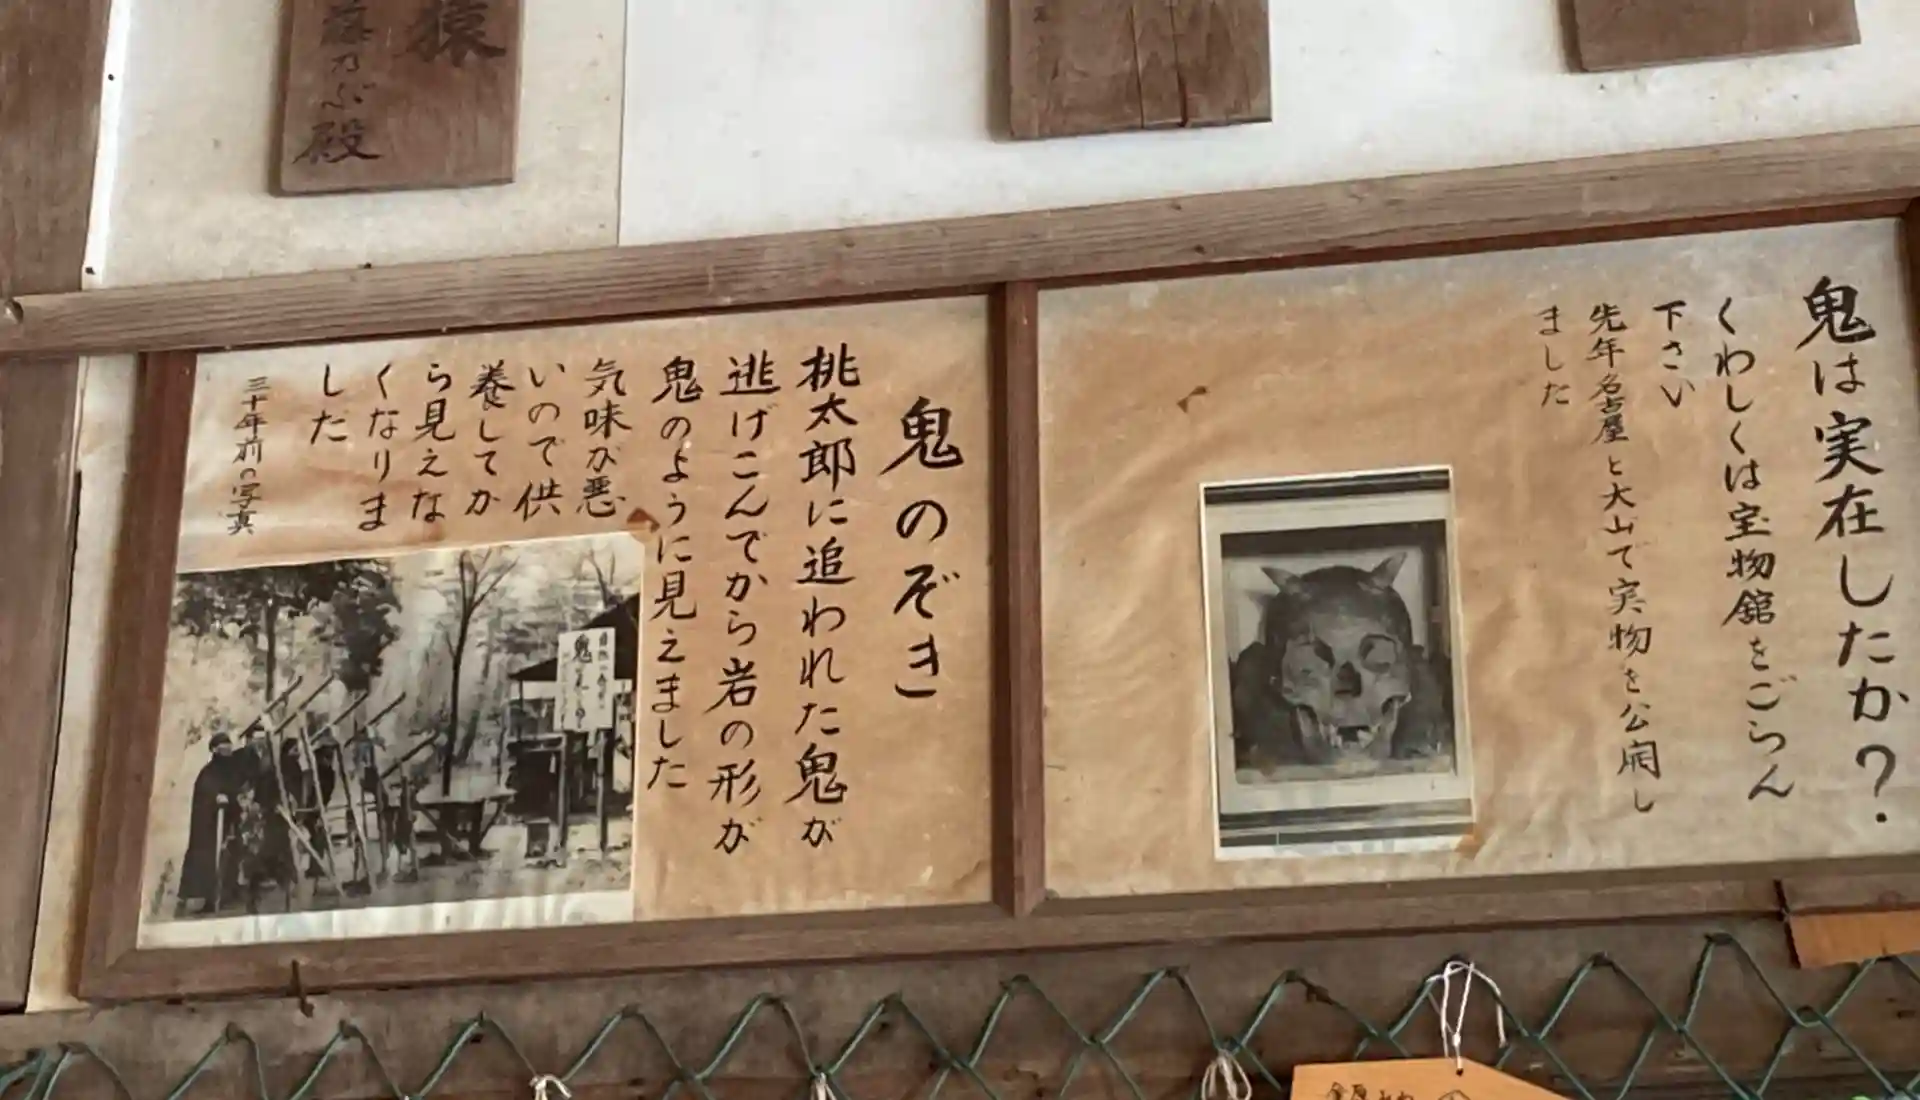 猿
藤乃ぶ殿
鬼は実在したか?
くわしくは宝物館をごらん
下さい
先年名古屋と犬山で実物を公開し
ました
鬼のぞき
桃太郎に追われた鬼が
逃げこんでから岩の形が
鬼のように見えました
気味が悪
いので供
養してか
ら見えな
くなりま
した
三十年前の写真
鬼